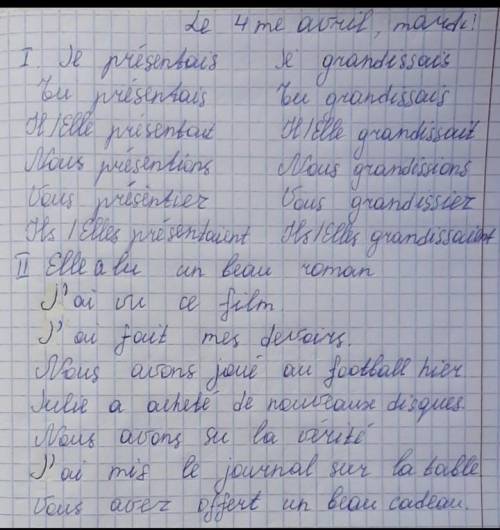 Le 4 me avril, mardi!
I. Je présentais Je grandissais
Tu présentais Tu grandissais
Il/Elle présentait Il/Elle grandissait
Nous présentions Nous grandissions
Vous présentier Vous grandissier
Ils/Elles présentaient Ils/Elles grandissaient
II Elle a lu un beau roman
J'ai vu ce film.
J'ai fait mes devoirs.
Nous avons joué au football hier
Julie a acheté de nouveaux disques.
Nous avons su la vérité
J'ai mis le journal sur la table
Vous aver offert un beau cadeau.